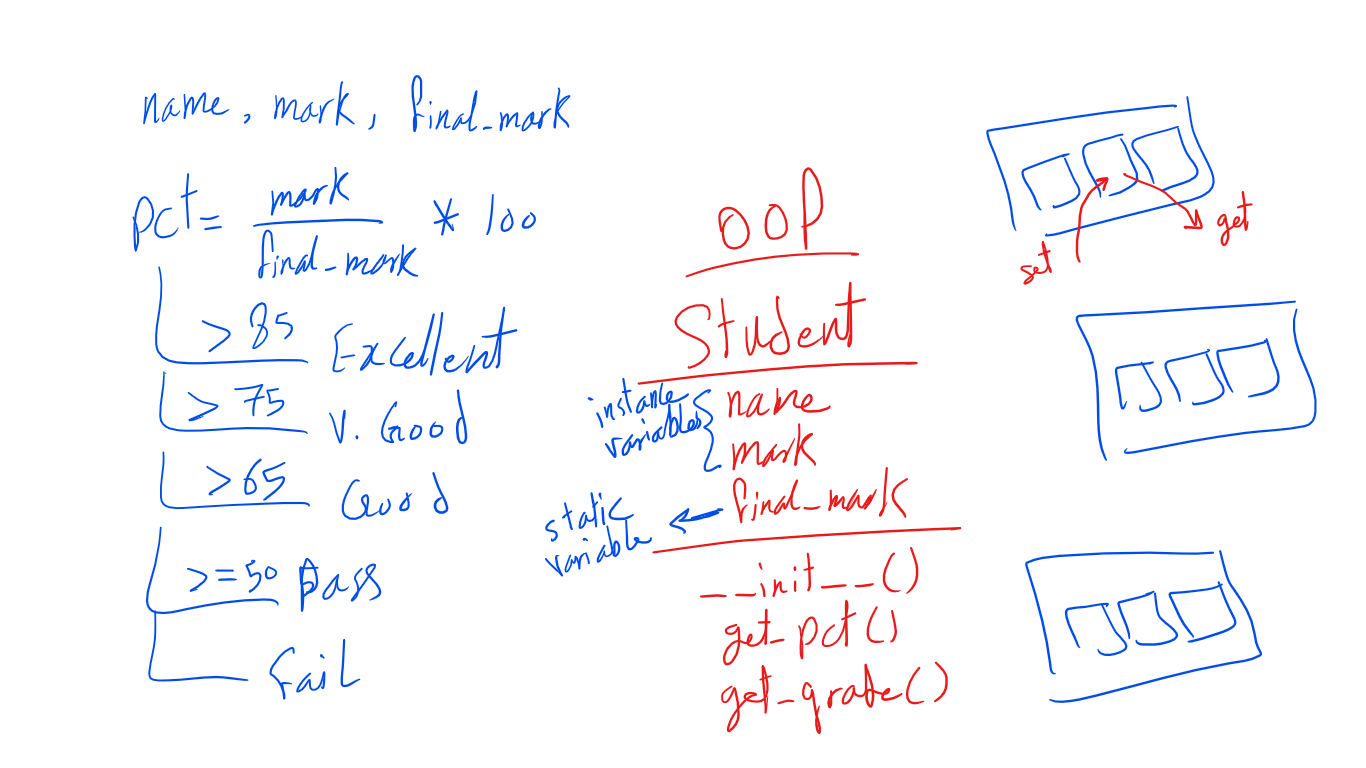 name, mark, final_mark
pct = mark / final_mark * 100
> 85 Excellent
> 75 V. Good
> 65 Good
>= 50 pass
fail
OOP
Student
instance variables
name
mark
final_mark
static variable
__init__()
get_pct()
get_grade()
set
get